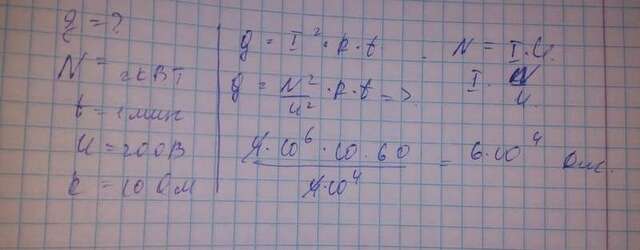 q = ?
N = 2кВт
t = 1 мин
U = 200В
R = 10 Ом
q = I² · R · t
q = N²/U² · R · t =>
4 · 10⁶ · 10 · 60 / 4 · 10⁴ = 6 · 10⁴ Дж.
N = I · U.
I = N/U